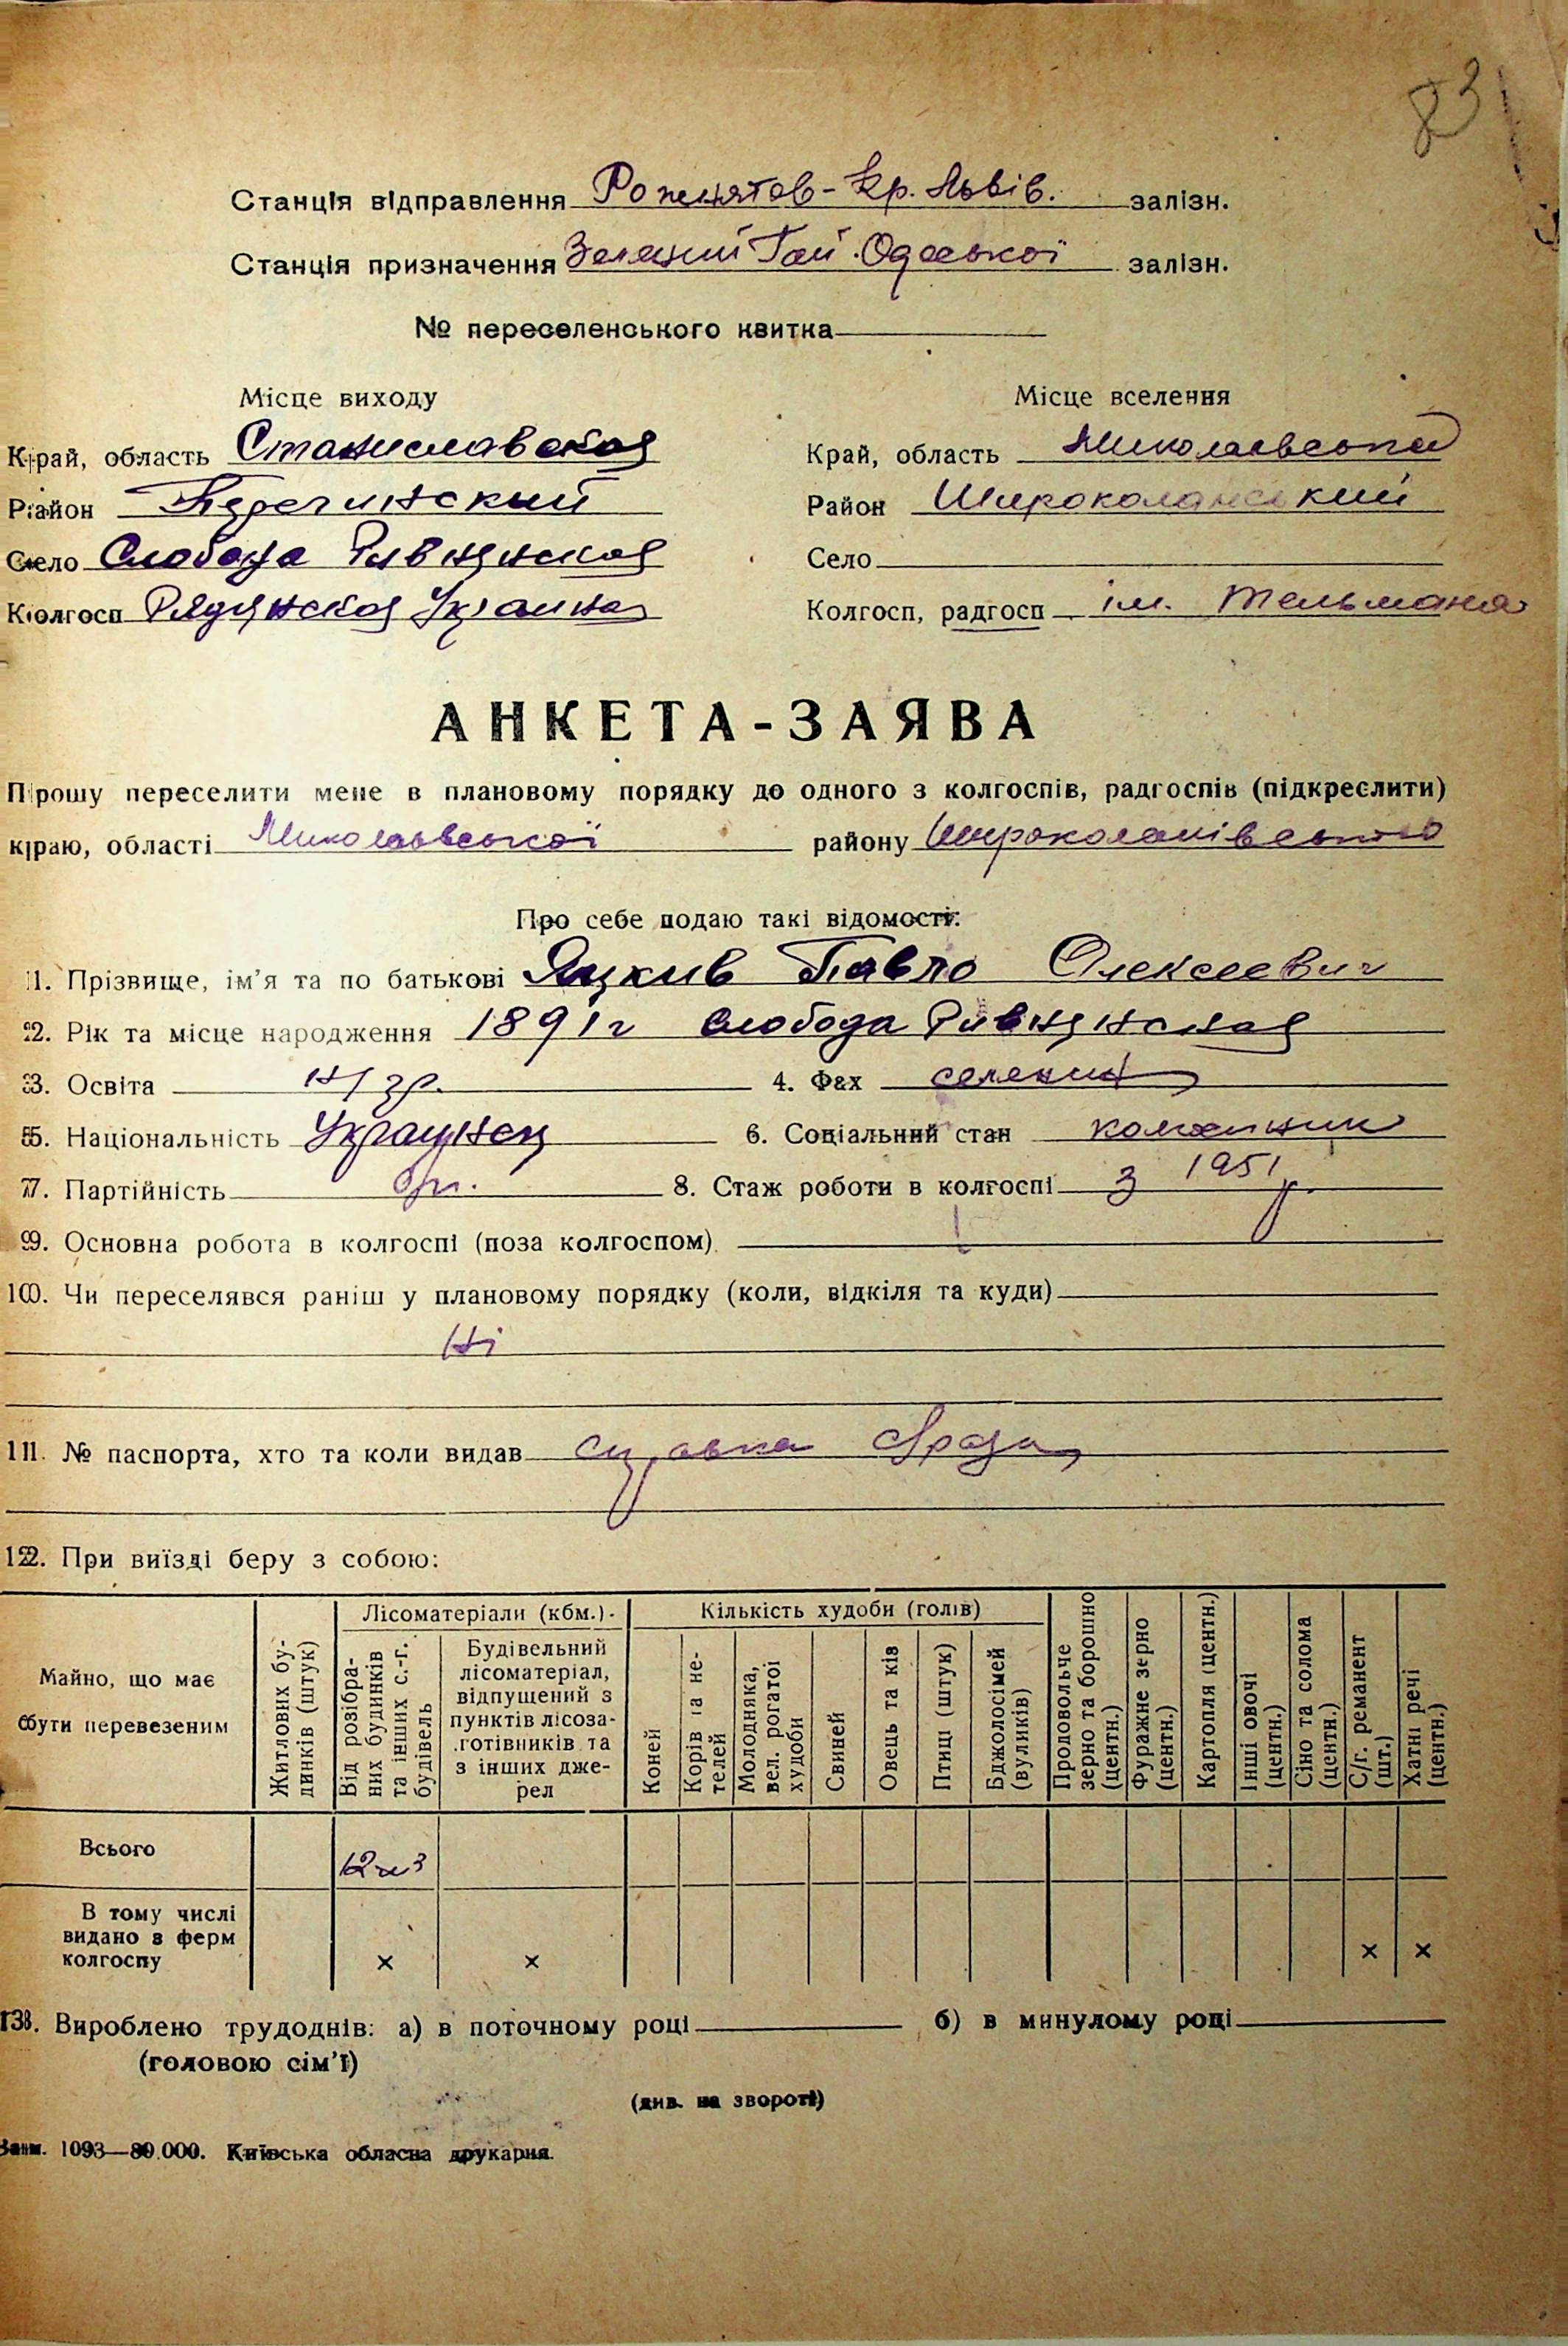 83
Станція відправлення Рожнятов-Кр. Львів. залізн.
Станція призначення Зелений Гай Одеської залізн.
№ переселенського квитка
Місце виходу
Край, область Станиславская
Район Перегинский
Село Слобода Ривнянская
Колгосп Рядянская Украина
Місце вселення
Край, область Миколаївська
Район Широколанський
Село
Колгосп, радгосп ім. Тельмана
АНКЕТА-ЗАЯВА
Прошу переселити мене в плановому порядку до одного з колгоспів, радгоспів (підкреслити)
краю, області Миколаївської району Широколанівського
Про себе подаю такі відомості:
1. Прізвище, ім'я та по батькові Яцкив Павло Олексеевич
2. Рік та місце народження 1891г Слобода Ривнянская
3. Освіта н/гр. 4. Фах селянин
5. Національність Украинец 6. Соціальний стан колгоспник
7. Партійність б/п. 8. Стаж роботи в колгоспі з 1951 р.
9. Основна робота в колгоспі (поза колгоспом)
10. Чи переселявся раніш у плановому порядку (коли, відкіля та куди)
Ні
11. № паспорта, хто та коли видав справка
12. При виїзді беру з собою:
Майно, що має бути перевезеним
Житлових будинків (штук)
Лісоматеріали (кбм.)
Від розібраних будинків та інших с.-г. будівель
Будівельний лісоматеріал, відпущений з пунктів лісозаготівників та з інших джерел
Кількість худоби (голів)
Коней
Корів та нетелей
Молодняка, вел. рогатої худоби
Свиней
Овець та ків
Птиці (штук)
Бджолосімей (вуликів)
Продовольче зерно та борошно (центн.)
Фуражне зерно (центн.)
Картопля (центн.)
Інші овочі (центн.)
Сіно та солома (центн.)
С/г. реманент (шт.)
Хатні речі (центн.)
Всього 12 м³
В тому числі видано з ферм колгоспу × × × ×
13. Вироблено трудоднів: а) в поточному році б) в минулому році
(головою сім'ї)
(див. на звороті)
Зам. 1093—80.000. Київська обласна друкарня.